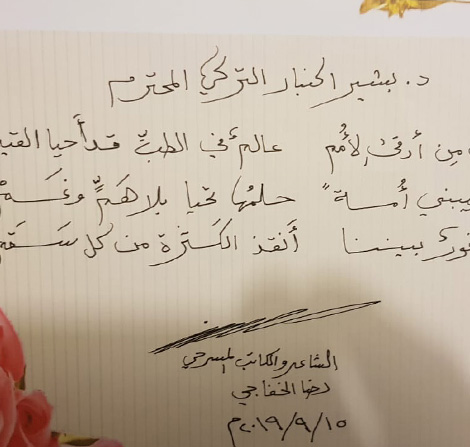 د. بشير التركي المحترم
من أرقى الأمم عالم في الطبِّ قد أحيا
حلمُها تحيا بلا همٍّ وغم
بيننا أنقذ الكثرة من كل سقم
الشاعر والكاتب المسرحي
رضا الخفاجي
٢٠١٩/٩/١٥م